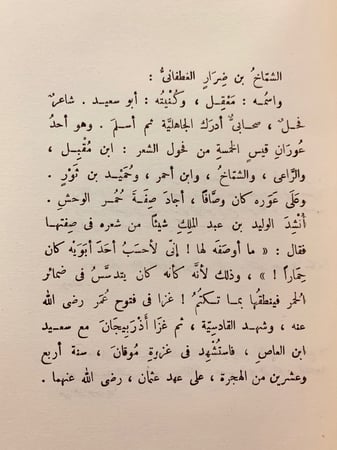 الشمّاخُ بن ضِرارٍ الغطفانىُّ :
واسمُه : مَعْقِل ، وكُنْيتُه : أبو سعيد . شاعرٌ
فحلٌ ، صحابىٌّ أدرَك الجاهليَّة ثم أسلمَ . وهو أحدُ
عُورَانِ قيسٍ الخمسةِ من فحولِ الشعر : ابن مُقْبِل ،
والرَّاعى ، والشمَّاخ ، وابن أحمر ، وحُمَيْد بن ثَوْر .
وعَلَى عَوَره كان وصَّافًا ، أجادَ صِفَةَ حُمُر الوحش .
أُنْشِدَ الوليد بن عبد الملِك شيئًا من شعره فى صِفتها
فقال : « ما أوصَفَه لها ! إنّى لأحسَبُ أحدَ أبوَيْه كان
حِمَاراً ! » ، وذلك لأنَّه كأنه كان يتدسَّسُ فى ضمائر
الحمر فينطقُها بما تكتمُ ! غزا فى فتوح عُمَر رضى الله
عنه ، وشهِد القادسيَّة ، ثم غَزَا أذْرَبِيجَانَ مع سعيد
ابن العاصِ ، فاستُشْهِد فى غزوةِ مُوقَانَ ، سنة أربع
وعشرين من الهجرة ، على عهد عثمان ، رضى الله عنهما .